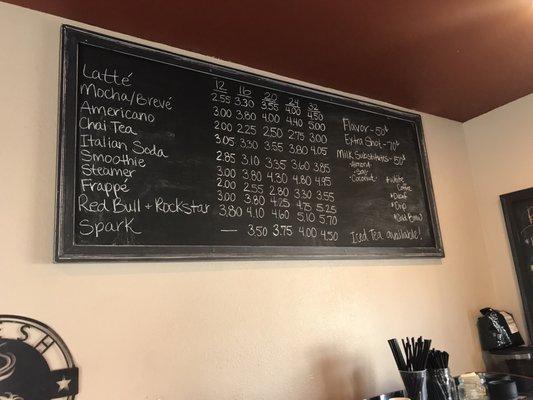 12 16 20 24 32
Latté 2.55 3.30 3.55 4.00 4.50
Mocha/Brevé 3.00 3.80 4.00 4.40 5.00
Americano 2.00 2.25 2.50 2.75 3.00
Chai Tea 3.05 3.30 3.55 3.80 4.05
Italian Soda 2.85 3.10 3.35 3.60 3.85
Smoothie 3.00 3.80 4.30 4.80 4.95
Steamer 2.00 2.55 2.80 3.30 3.55
Frappé 3.00 3.80 4.25 4.75 5.25
Red Bull + Rockstar 3.80 4.10 4.60 5.10 5.70
Spark — 3.50 3.75 4.00 4.50
Flavor - 50¢
Extra Shot - 70¢
Milk Substitutes - 50¢
Almond
Soy
Coconut
*White
Coffee
*Decaf
*Drip
*Cold Brew
Iced Tea available!
ESH